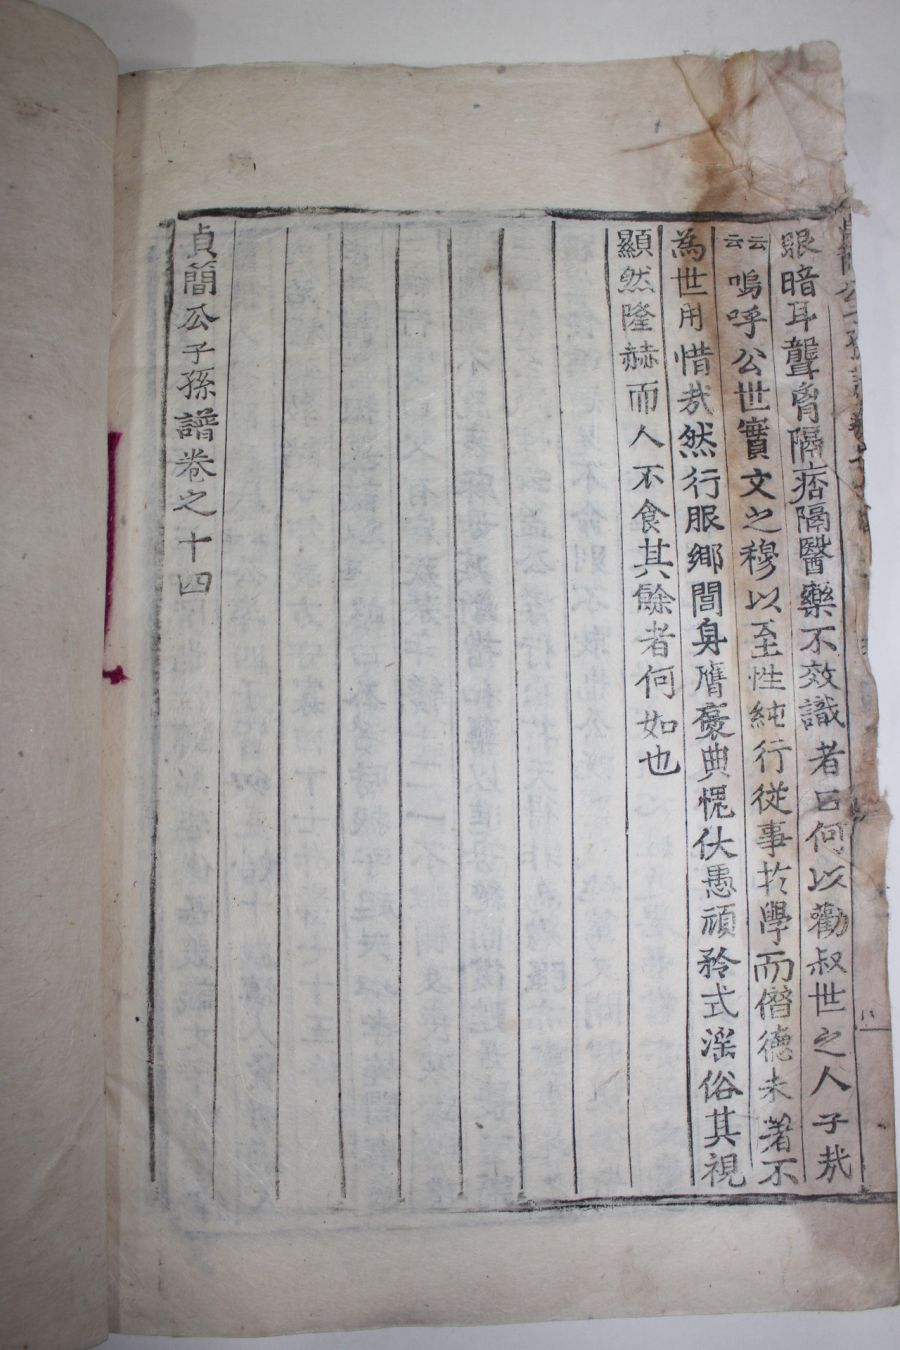 眼暗耳聾胷隔痞隔醫藥不效識者曰何以勸叔世之人子哉
云云 嗚呼公世實文之穆以至性純行從事於學而僭德未著不
為世用惜哉然行服鄉閭身膺褒典愧伏愚頑矜式滛俗其視
顯然隆赫而人不食其餘者何如也
貞簡公子孫譜卷之十四